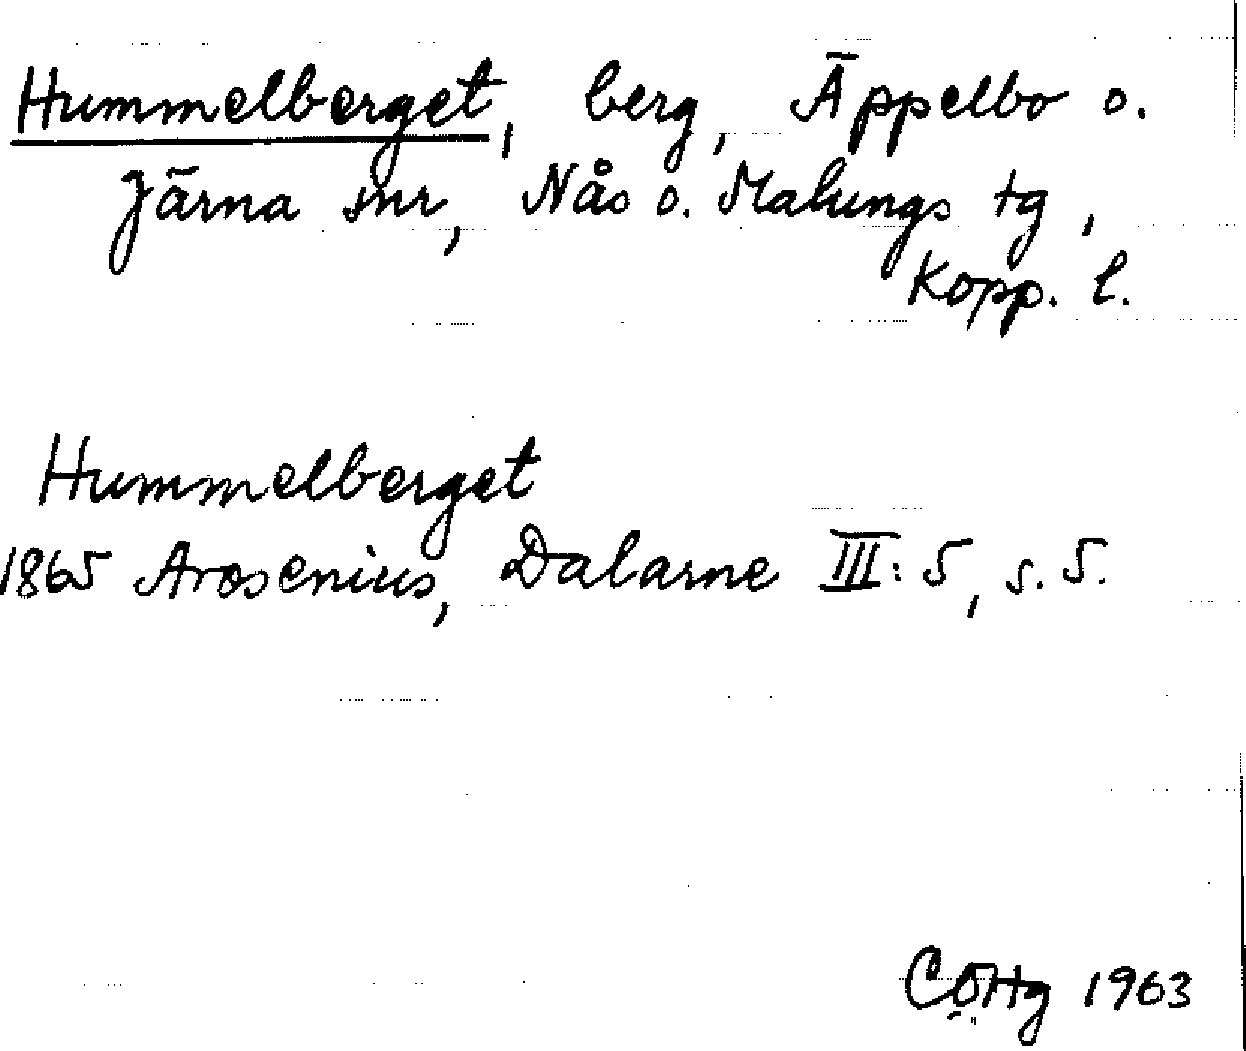 Hummelberget, berg, Äppelbo o.
Järna snr, Nås o. Malungs tg,
Kopp. l.
Hummelberget
1865 Arosenius, Dalarne III: 5, s. 5.
1963